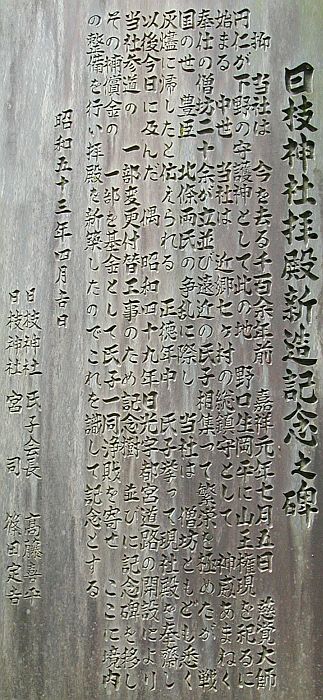 日枝神社拝殿新造記念之碑
抑 当社は 今を去る千百余年前 嘉祥元年七月五日 慈覚大師
円仁が下野の守護神として此の地 野口生岡平に山王権現を祀るに
始まる 中世 当社は 近郷七ヶ村の総鎮守として 神威あまねく
奉仕の僧坊二十余が立並び遠近の氏子相集って繁栄を極めたが 戦
国の世 豊臣 北條両氏の争乱に際し 当社は 僧坊ともども悉く
灰燼に帰したと伝えられる 正徳年中 氏子挙って現社殿を奉斎し
以後今日に及んだ 偶 昭和四十九年日光宇都宮道路の開設により
当社参道の 一部変更付替工事のため記念樹 並びに記念碑を移し
その補償金の一部を基金として氏子一同浄財を寄せ ここに境内
の整備を行い拝殿を新築したのでこれを識して記念とする
昭和五十三年四月吉日
日枝神社 氏子会長 高藤喜平
日枝神社 宮司 篠田定吉